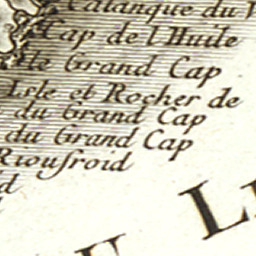 Calanque du
Cap de l'Huile
le Grand Cap
Isle et Rocher de
du Grand Cap
du Grand Cap
Rioufroid